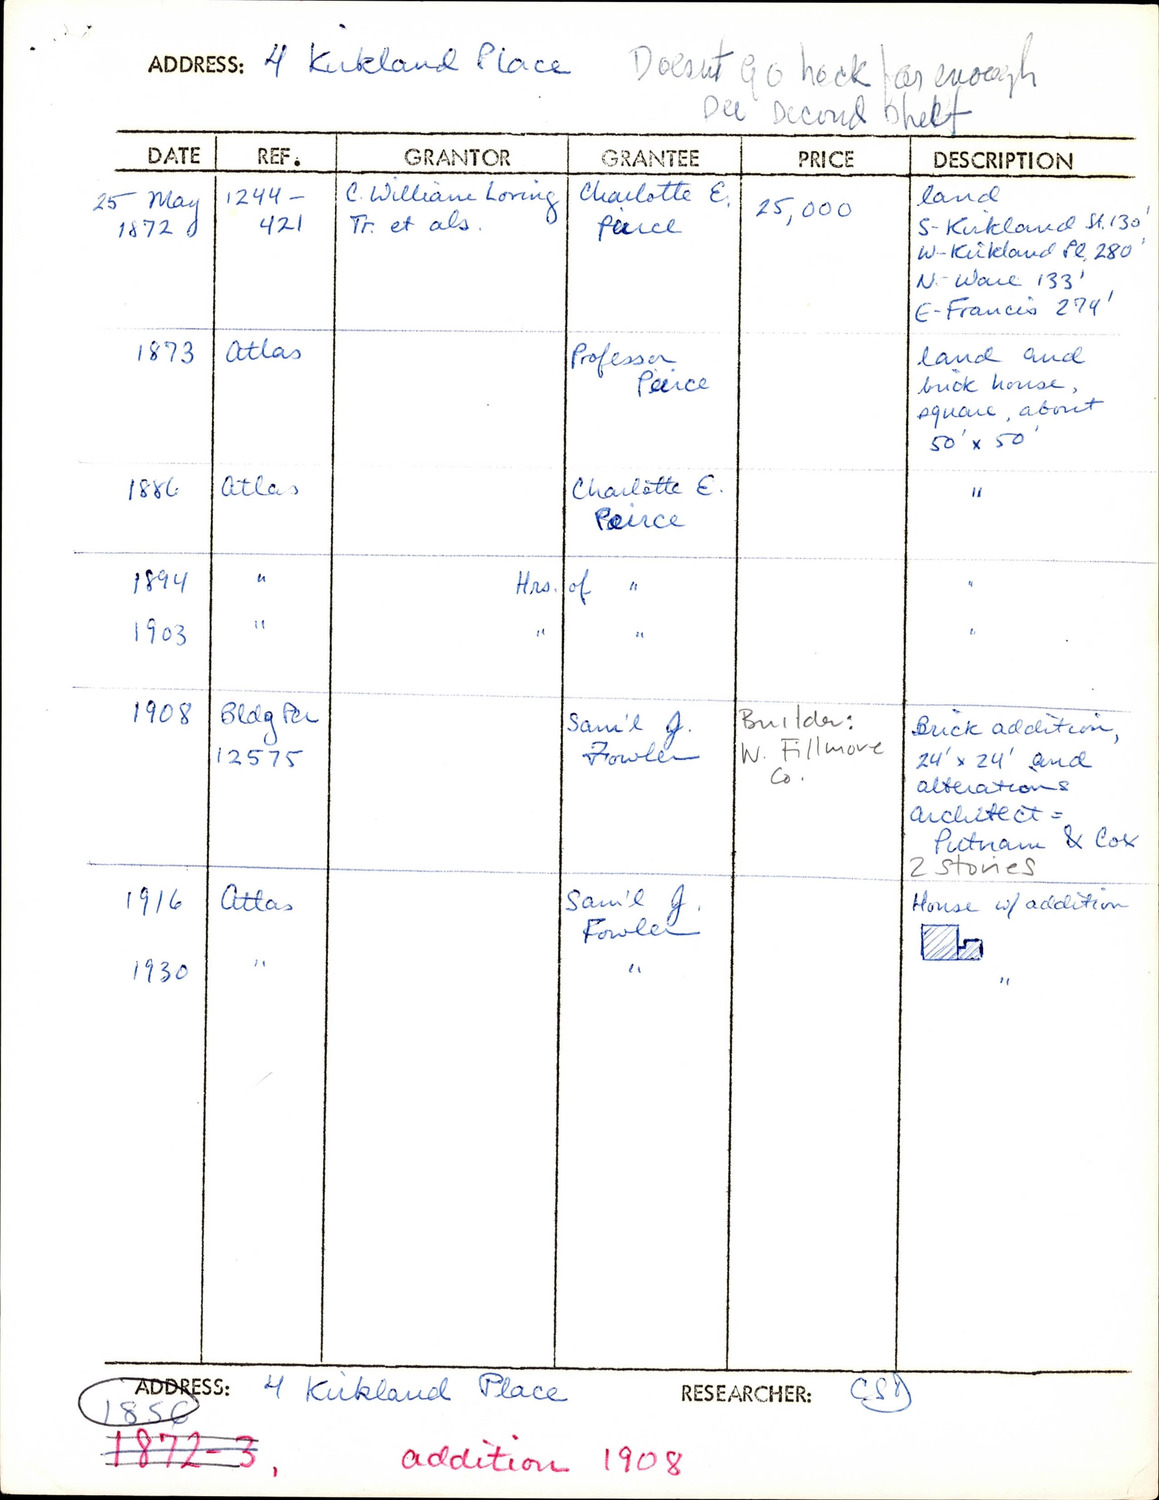 ADDRESS: 4 Kirkland Place
Doesn't go back far enough
See Second Sheet
DATE REF. GRANTOR GRANTEE PRICE DESCRIPTION
25 May 1872
1244-
421
C. William Loring
Tr. et als.
Charlotte E.
Peirce
25,000
land
S-Kirkland St. 130'
W-Kirkland Pl. 280'
N-Ware 133'
E-Francis 274'
1873
Atlas
Professor
Peirce
land and
brick house,
square, about
50' x 50'
1886
Atlas
Charlotte E.
Peirce
"
1894 " Hrs. of " "
1903 " " " "
1908
Bldg Per
12575
Sam'l J.
Fowler
Builder:
W. Fillmore
Co.
Brick addition,
24' x 24' and
alterations
architect =
Putnam & Cox
2 stories
1916
Atlas
Sam'l J.
Fowler
House w/ addition
1930 " " "
ADDRESS: 4 Kirkland Place RESEARCHER:
1856
1872-3, addition 1908